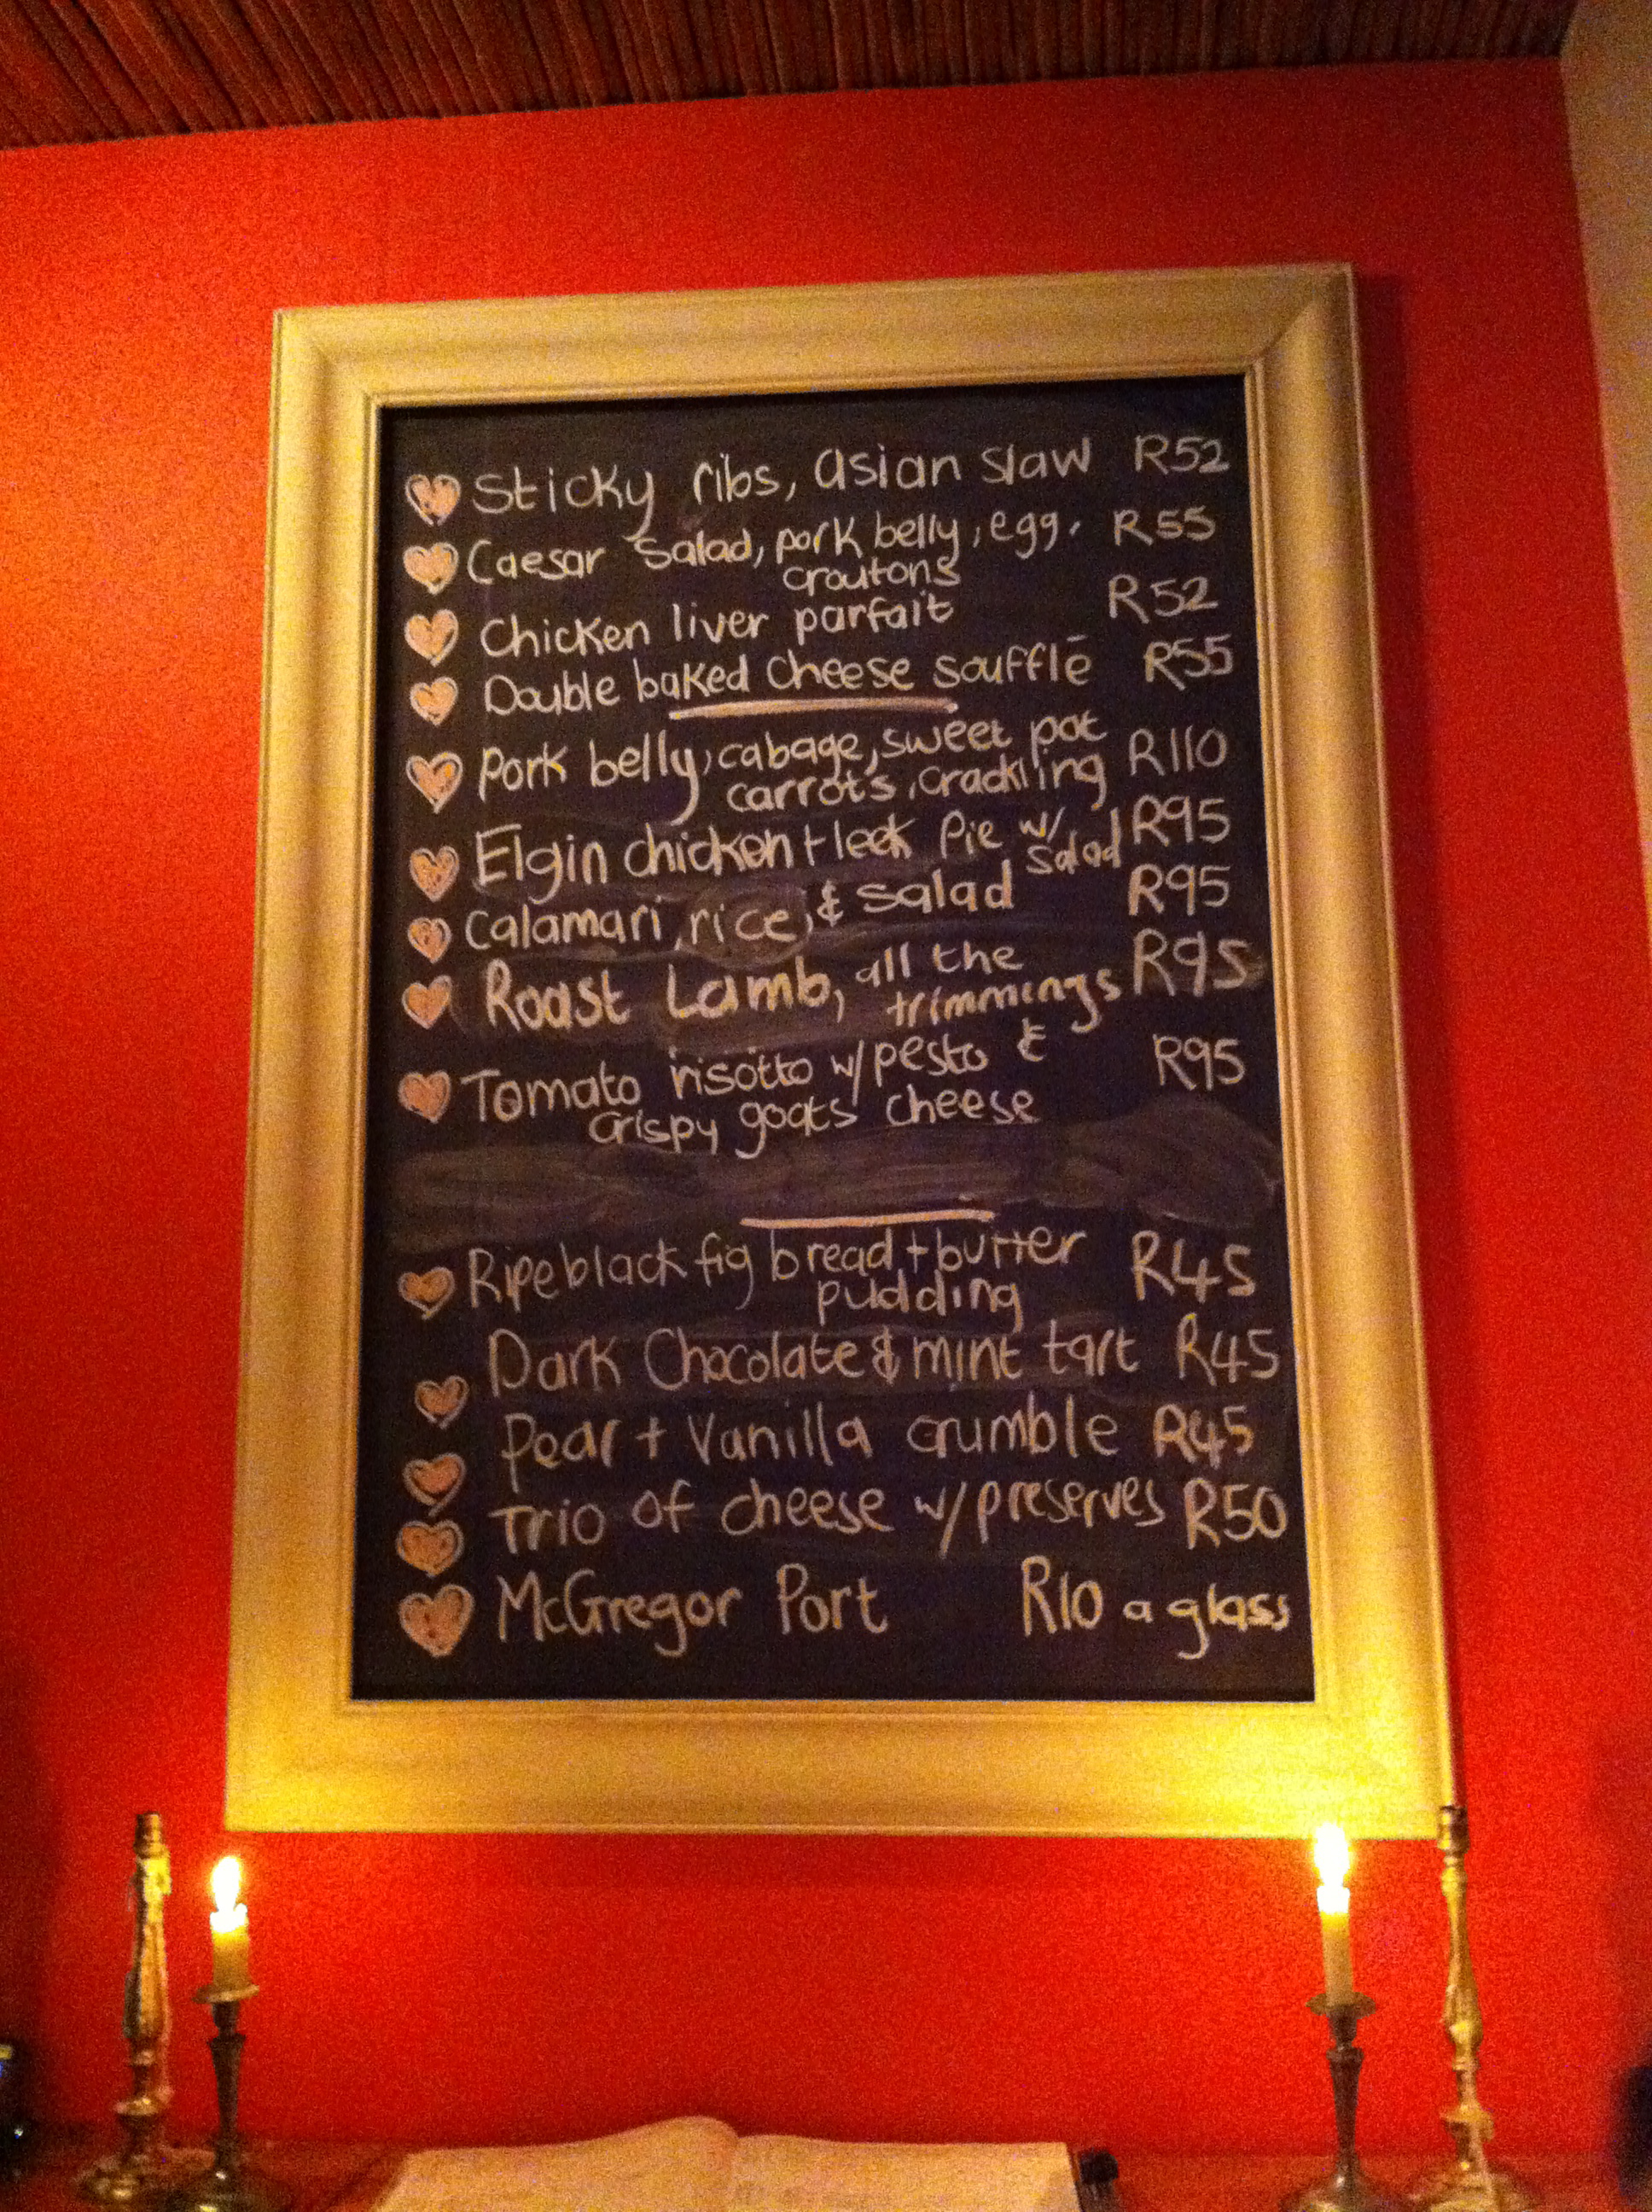 Sticky ribs, asian slaw R52
Caesar Salad, pork belly, egg, R55
croutons
Chicken liver parfait R52
Double baked Cheese soufflē R55
Pork belly, cabage, sweet pot
carrots, crackling R110
Elgin chicken + leek Pie w/ R95
Salad
Calamari, rice, & salad R95
Roast Lamb, all the R95
trimmings
Tomato risotto w/ pesto & R95
Crispy goats cheese
Ripe black fig bread + butter R45
pudding
Dark Chocolate & mint tart R45
Pear + Vanilla crumble R45
Trio of cheese w/ preserves R50
McGregor Port R10 a glass